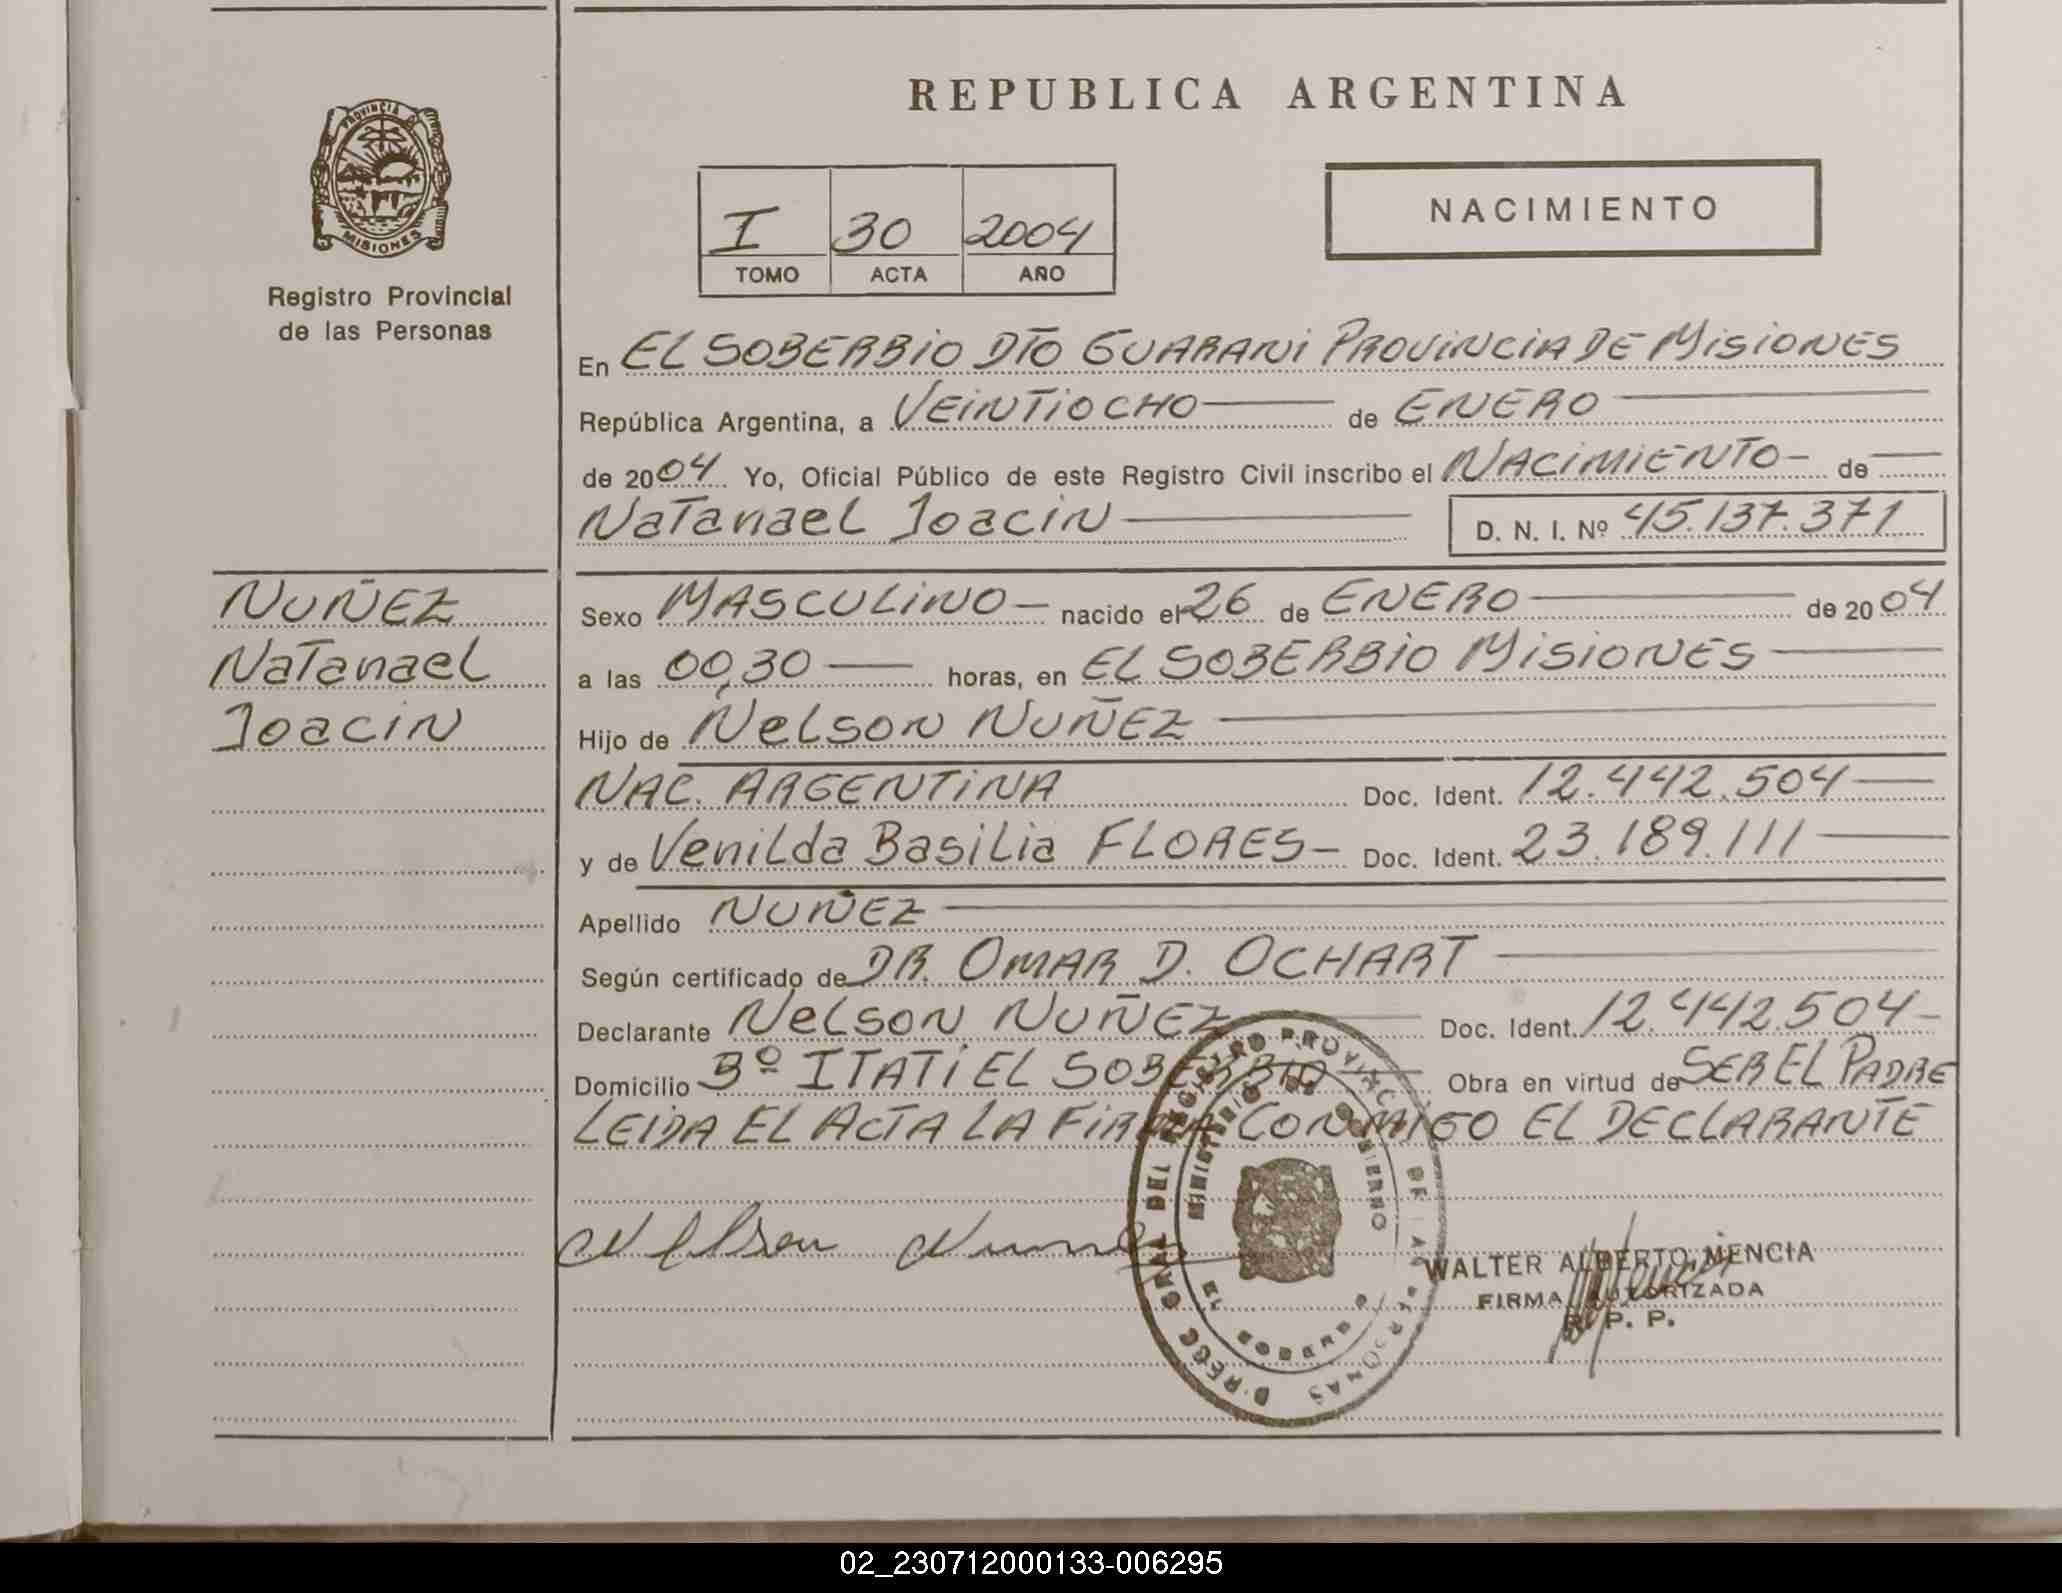 REPUBLICA ARGENTINA
PROVINCIA D
MISIONES
Registro Provincial
de las Personas
I 30 2004
TOMO ACTA AÑO
NACIMIENTO
En EL SOBERBIO DTO GUARANI PROVINCIA DE MISIONES
República Argentina, a VEINTIOCHO de ENERO
de 2004 Yo, Oficial Público de este Registro Civil inscribo el NACIMIENTO- de
Natanael Joacin D. N. I. Nº 45.137.371
NUÑEZ
Natanael
Joacin
Sexo MASCULINO- nacido el 26 de ENERO de 2004
a las 00,30 horas, en EL SOBERBIO MISIONES
Hijo de Nelson NUÑEZ
NAC. ARGENTINA Doc. Ident. 12.442.504
y de Venilda Basilia FLORES- Doc. Ident. 23.189.111
Apellido NUÑEZ
Según certificado de DR. OMAR D. OCHART
Declarante Nelson NUÑEZ Doc. Ident. 12.442.504-
Domicilio Bº ITATI EL SOBERBIO Obra en virtud de SER EL PADRE
LEIDA EL ACTA LA FIRMA CONMIGO EL DECLARANTE
DIRECC GRAL DEL REGISTRO PROVINC DE LAS PERSONAS
MINISTERIO DE GOBIERNO
EL SOBERB
Nelson Nuñez
WALTER ALBERTO MENCIA
FIRMA AUTORIZADA
R. P. P.
02_230712000133-006295